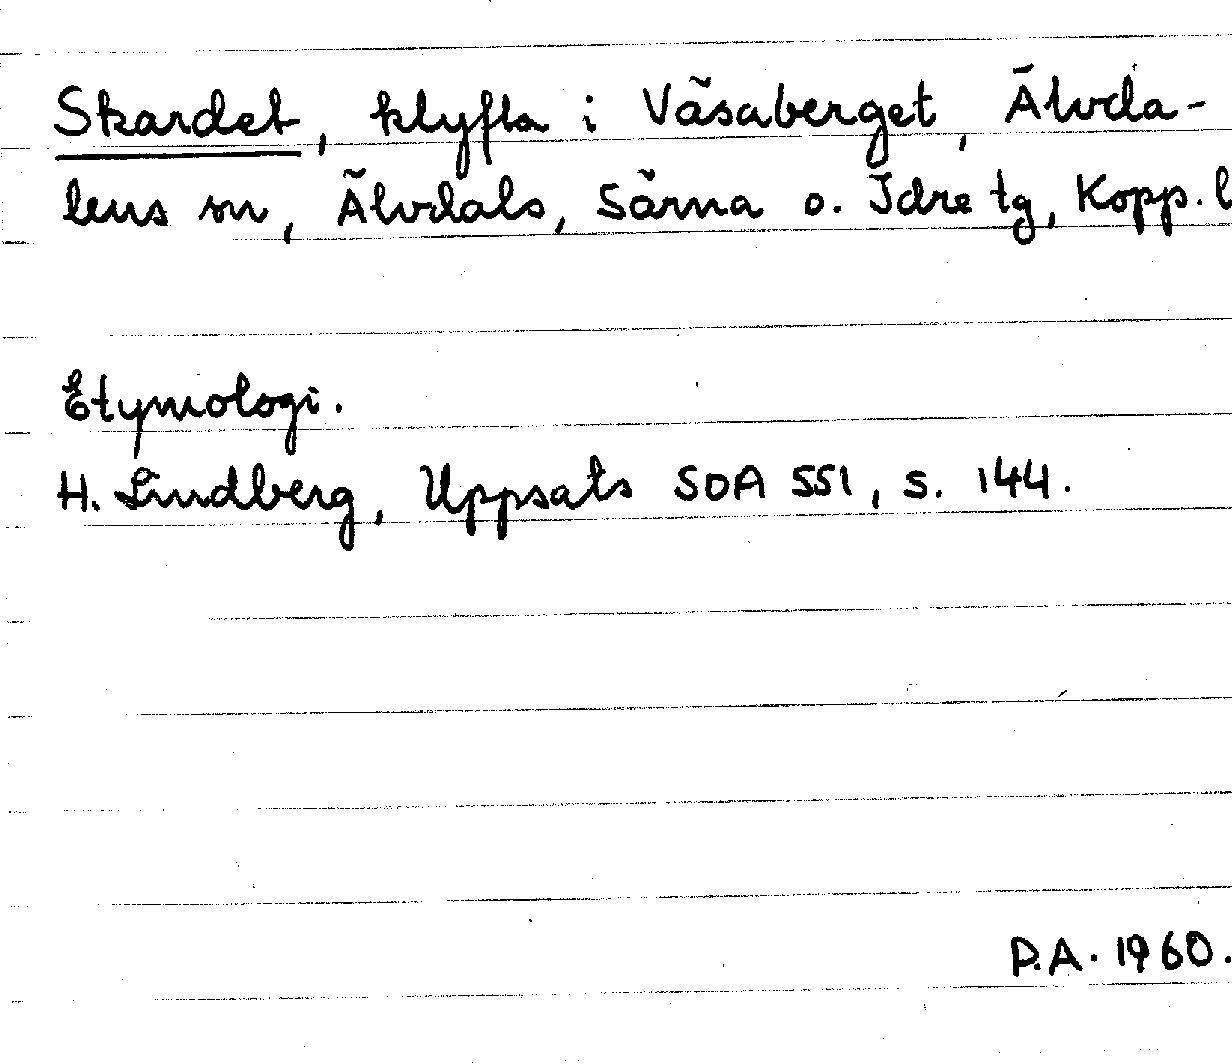 Skardet, klyfta i Väsaberget, Älvda-
lens sn, Älvdals, Särna o. Idre tg, Kopp. l
Etymologi.
H. Lindberg, Uppsats SOA 551, s. 144.
P.A. 1960.